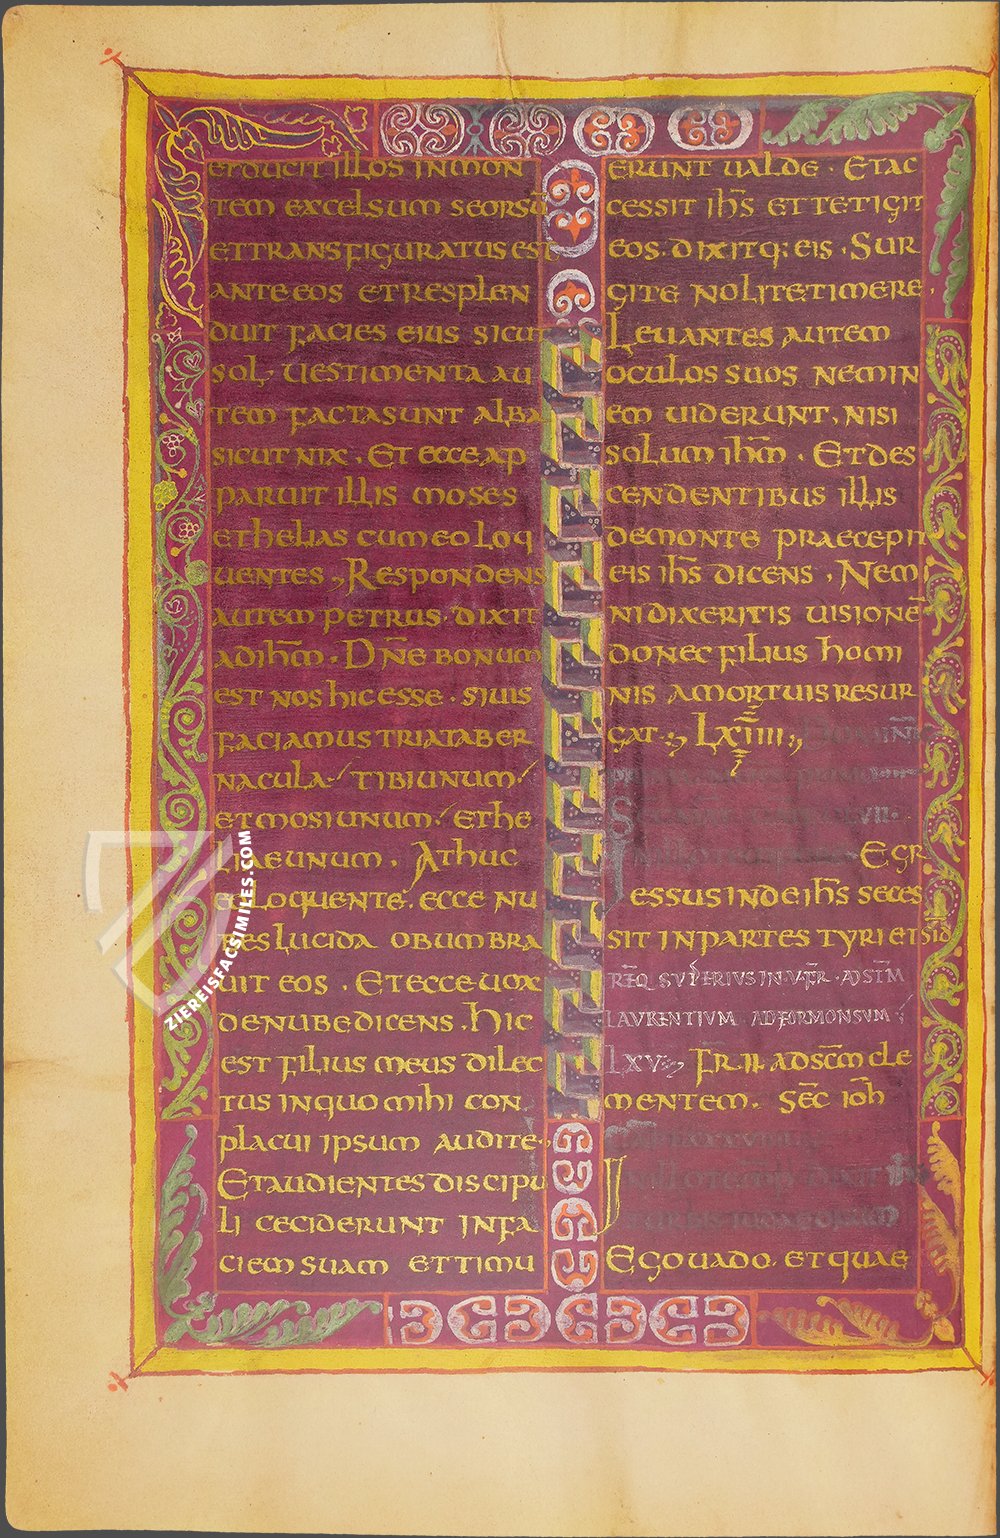 ET DUCIT ILLOS IN MON
TEM EXCELSUM SEORSŪ
ET TRANSFIGURATUS EST
ANTE EOS ET RESPLEN
DUIT FACIES EIUS SICUT
SOL. UESTIMENTA AU
TEM FACTA SUNT ALBA
SICUT NIX. ET ECCE AP
PARUIT ILLIS MOSES
ET HELIAS CUM EO LOQ
UENTES, RESPONDENS
AUTEM PETRUS. DIXIT
AD IHM̄. DÑE BONUM
EST NOS HIC ESSE. SI UIS
FACIAMUS TRIA TABER
NACULA. TIBI UNUM
ET MOSI UNUM ET HE
LIAE UNUM. ATHUC
EO LOQUENTE. ECCE NU
BES LUCIDA OBUMBRA
UIT EOS. ET ECCE UOX
DE NUBE DICENS. HIC
EST FILIUS MEUS DILEC
TUS IN QUO MIHI CON
PLACUI IPSUM AUDITE.
ET AUDIENTES DISCIPU
LI CECIDERUNT IN FA
CIEM SUAM ET TIMU
ERUNT UALDE. ET AC
CESSIT IHS̄ ET TETIGIT
EOS. DIXITQ: EIS. SUR
GITE NOLITE TIMERE.
LEUANTES AUTEM
OCULOS SUOS NEMIN
EM UIDERUNT, NISI
SOLUM IHM̄. ET DES
CENDENTIBUS ILLIS
DE MONTE PRAECEPIT
EIS IHS̄ DICENS. NEM
NI DIXERITIS UISIONĒ
DONEC FILIUS HOMI
NIS A MORTUIS RESUR
GAT. LXIIII
VII.
EGR
ESSUS INDE IHS̄ SECES
SIT IN PARTES TYRI ET SID
REQ̄ SUPERIUS IN. V. FR̄. AD SC̄M
LAURENTIUM AD FORMONSUM
LXV. FR̄ II AD SC̄M CLE
MENTEM. SEC̄ IOH̄
IN ILLO TEMP̄ DIXIT IHS̄
TURBIS IUDAEORUM
EGO UADO. ET QUAE
ZIEREISFACSIMILES.COM